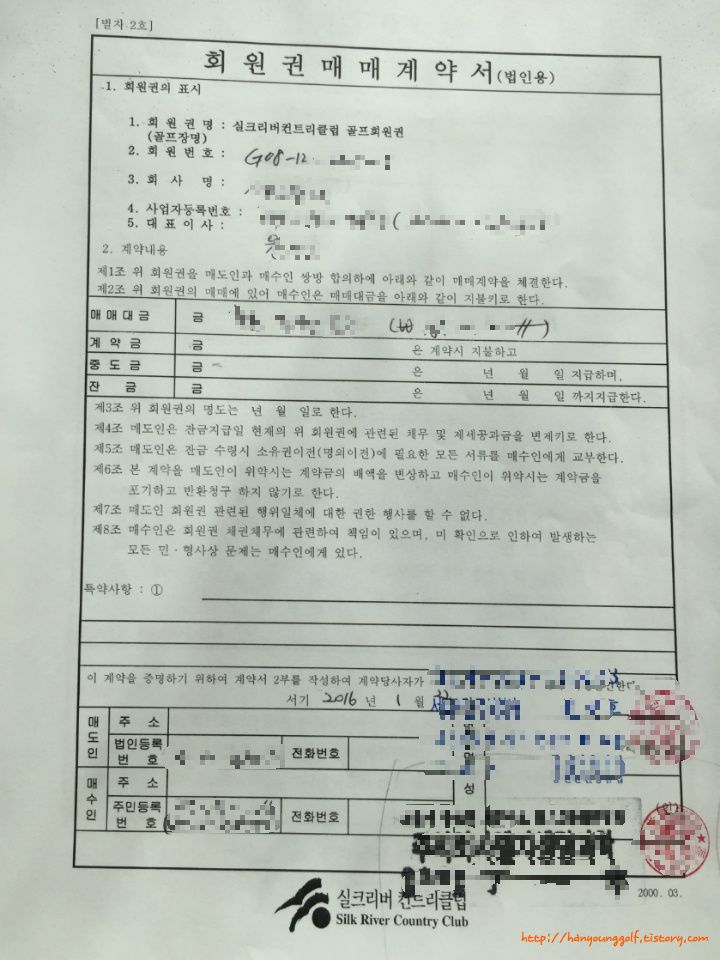 [별지 2호]
회 원 권 매 매 계 약 서 (법인용)
1. 회원권의 표시
1. 회 원 권 명 : 실크리버컨트리클럽 골프회원권
(골프장명)
2. 회 원 번 호 : G08-12
3. 회 사 명 :
4. 사업자등록번호 :
5. 대 표 이 사 :
2. 계약내용
제1조 위 회원권을 매도인과 매수인 쌍방 합의하에 아래와 같이 매매계약을 체결한다.
제2조 위 회원권의 매매에 있어 매수인은 매매대금을 아래와 같이 지불키로 한다.
매 매 대 금 금
계 약 금 금 은 계약시 지불하고
중 도 금 금 은 년 월 일 지급하며,
잔 금 금 은 년 월 일 까지지급한다.
제3조 위 회원권의 명도는 년 월 일로 한다.
제4조 매도인은 잔금지급일 현재의 위 회원권에 관련된 채무 및 제세공과금을 변제키로 한다.
제5조 매도인은 잔금 수령시 소유권이전(명의이전)에 필요한 모든 서류를 매수인에게 교부한다.
제6조 본 계약을 매도인이 위약시는 계약금의 배액을 변상하고 매수인이 위약시는 계약금을
포기하고 반환청구 하지 않기로 한다.
제7조 매도인 회원권 관련된 행위일체에 대한 권한 행사를 할 수 없다.
제8조 매수인은 회원권 채권채무에 관련하여 책임이 있으며, 미 확인으로 인하여 발생하는
모든 민·형사상 문제는 매수인에게 있다.
특약사항 : ①
이 계약을 증명하기 위하여 계약서 2부를 작성하여 계약당사자가
서기 2016 년 1 월
매도인 주 소
법인등록번 호 전화번호
매수인 주 소 성
주민등록번 호 전화번호
(인)
2000. 03.
실크리버 컨트리클럽
Silk River Country Club
http://hanyounggolf.tistory.com